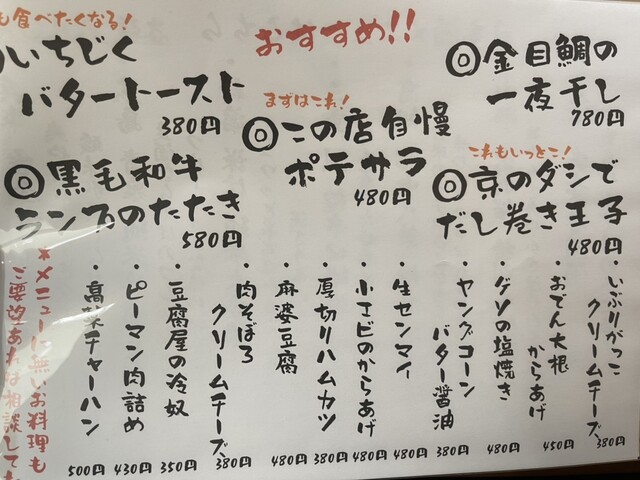 も食べたくなる!
いちじく
バタートースト
380円
おすすめ!!
まずはこれ!
◎この店自慢
ポテサラ
480円
◎金目鯛の
一夜干し
780円
◎黒毛和牛
ランプのたたき
580円
これもいっとこ!
◎京のダシで
だし巻き玉子
480円
・いぶりがっこ
クリームチーズ
380円
・おでん大根
からあげ
450円
・ゲソの塩焼き
480円
・ヤングコーン
バター醤油
380円
・生センマイ
480円
・小エビのからあげ
480円
・厚切りハムカツ
380円
・麻婆豆腐
480円
・肉そぼろ
クリームチーズ
380円
・豆腐屋の冷奴
350円
・ピーマン肉詰め
430円
・高菜チャーハン
500円
*メニューに無いお料理も
ご要望あれば相談して